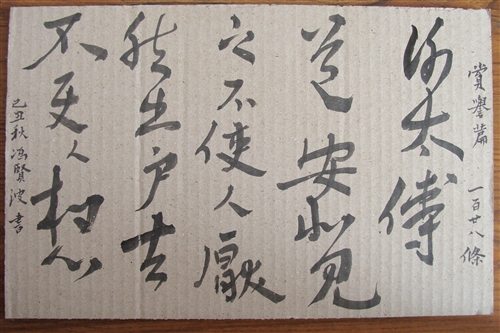 賞譽篇 一百廿八條
謝太傅
道安北見
之不使人厭
然出戶去
不人想
己丑秋馮賢波書